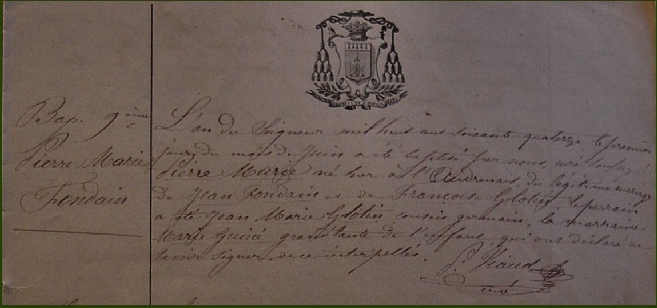 Bap. 9ème
Pierre Marie
Fondain
L'an du Seigneur mil huit cent soixante quatorze le premier
jour du mois de Juin a été baptisé par nous, curé soussigné
Pierre Marie né hier à l' du légitime mariage
de Jean Fondain et de Françoise Glotin le parrain
a été Jean Marie Glotin cousin germain, la marraine
Marie Guiné grand'tante de l'enfant, qui ont déclaré ne
savoir signer, de ce interpellés.
P. Viaud
curé